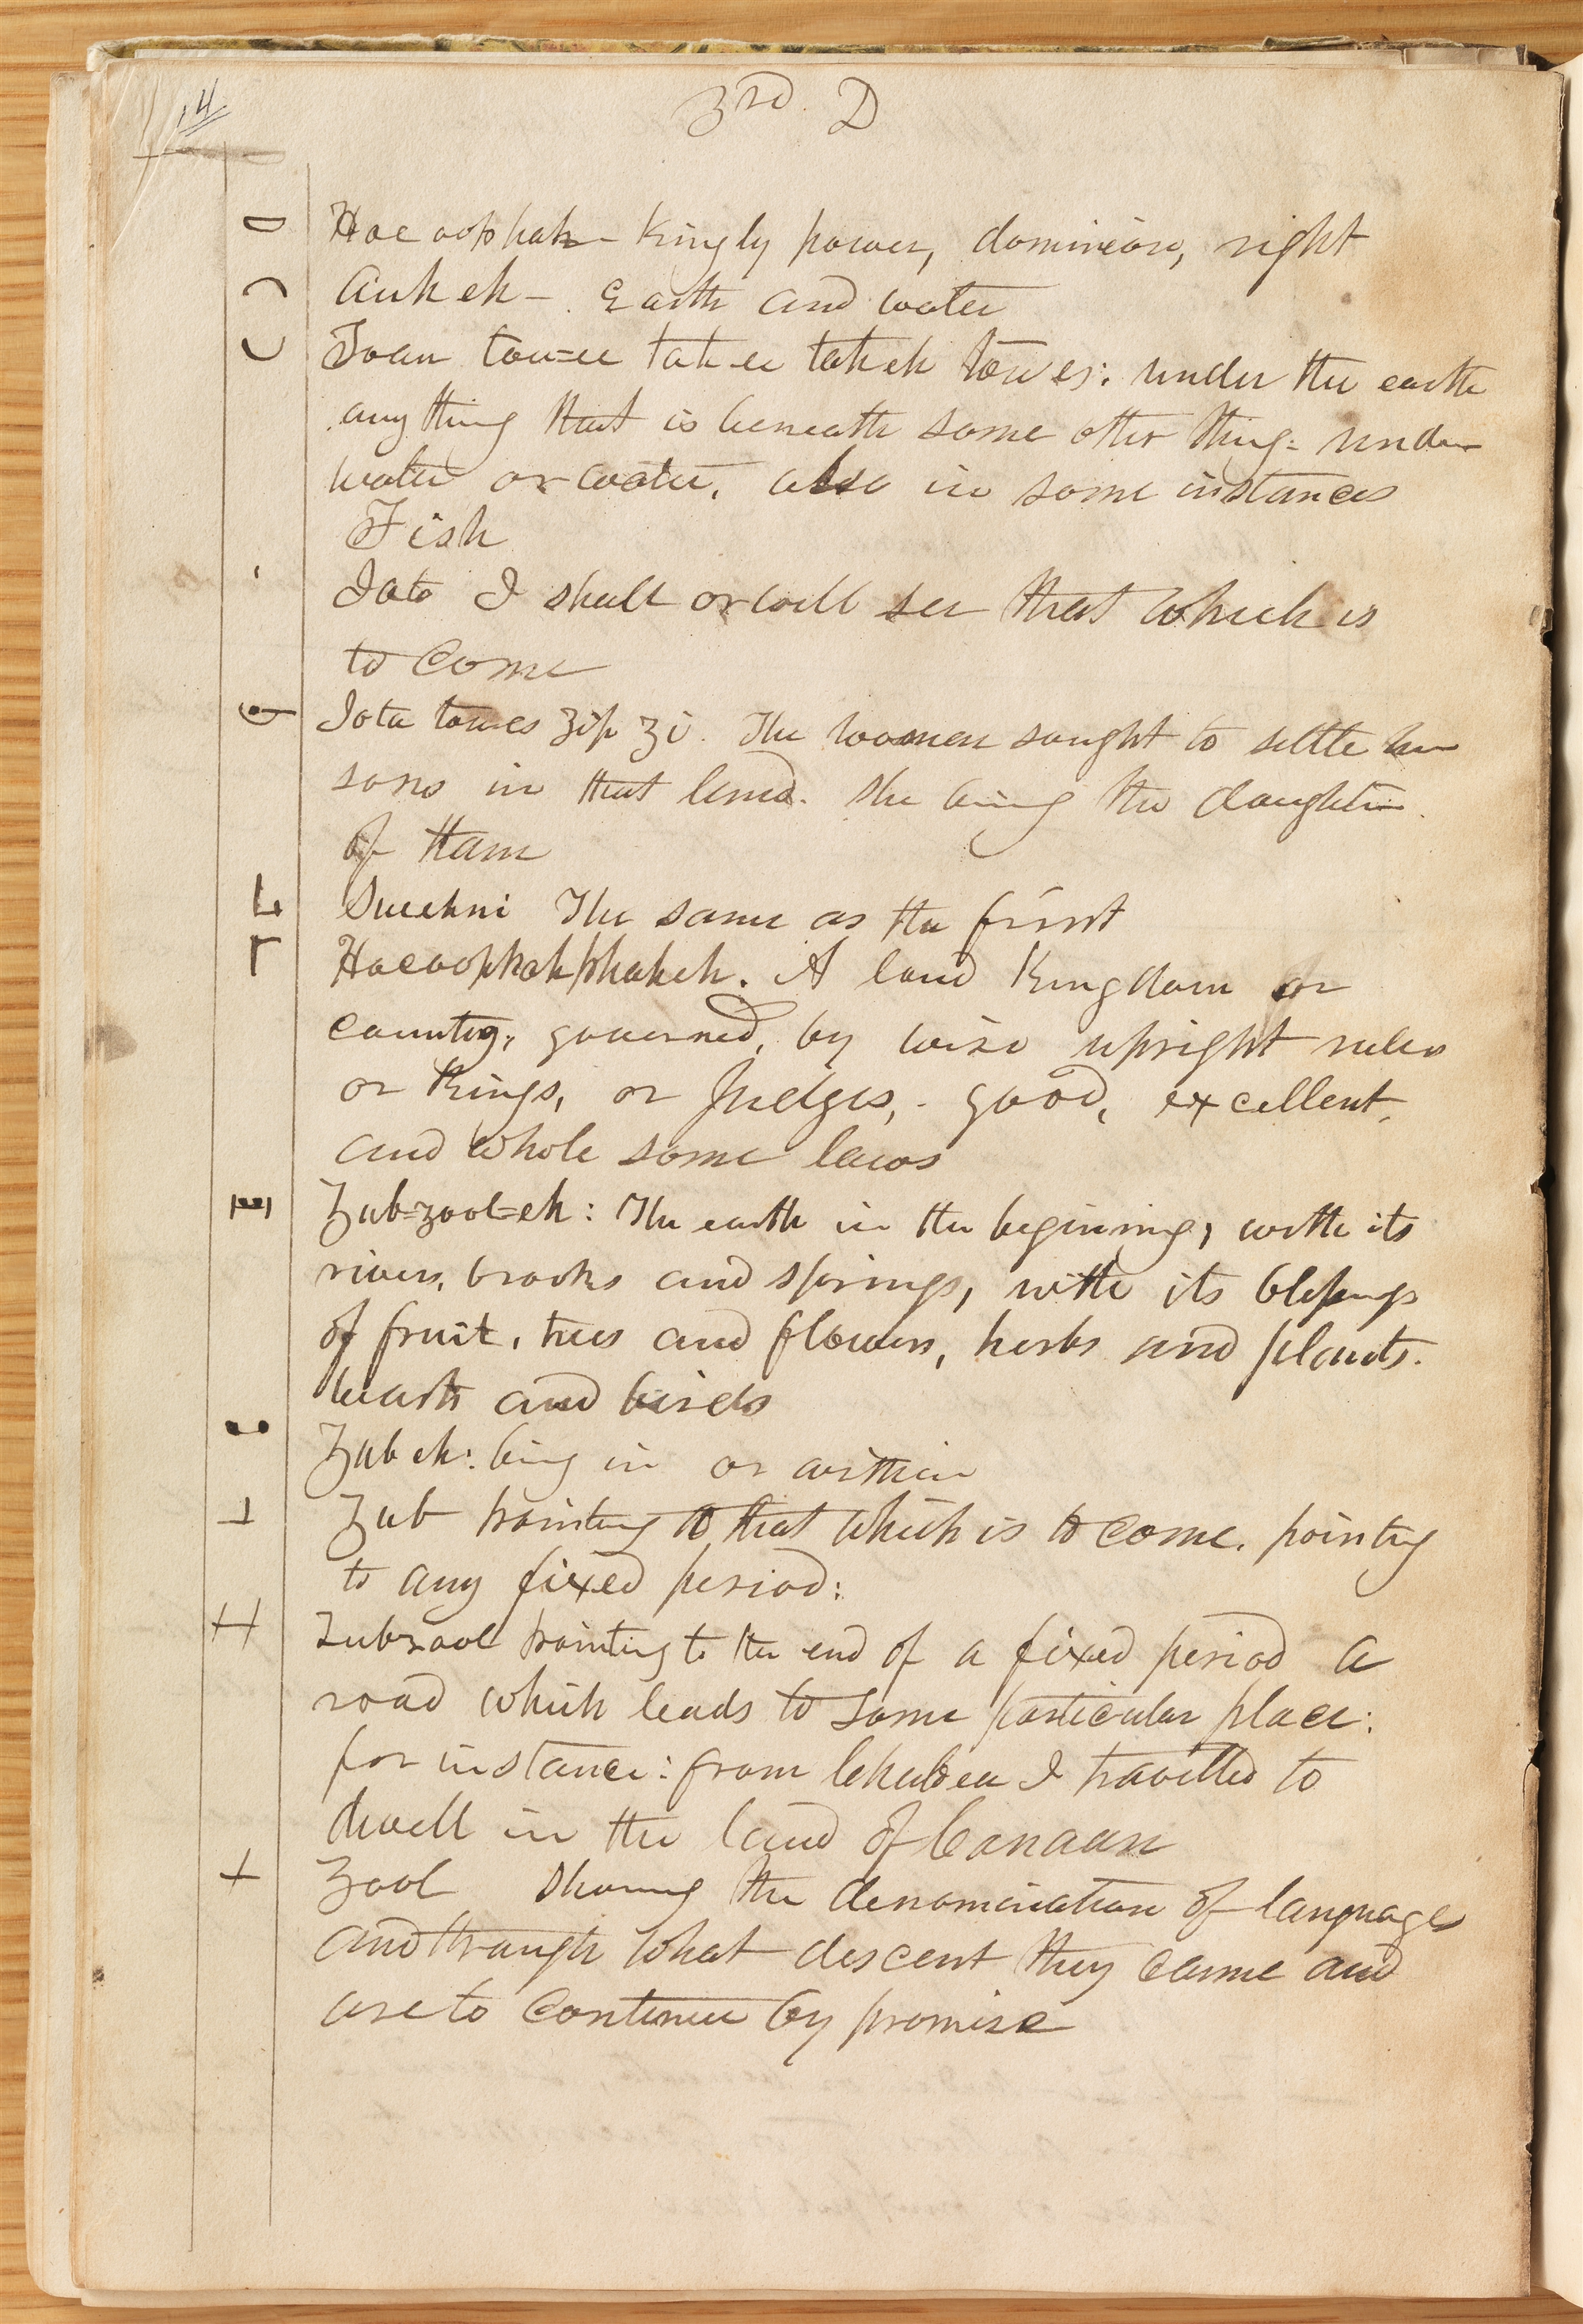 14
3rd. D
Hoe oophah - Kingly power, dominion, right
Auk eh - Earth and water
Toan tou=ee tah-ee tah eh toues: under the earth
any thing that is beneath some other thing: under
water or water, also in some instances
Fish
Iota I shall or will see that which is
to come
Iota toues Zip Zi. The woomen sought to settle her
sons in that land. she being the daughter
of Ham
Sueehni The same as the first
Hoeoophahphaheh. A land Kingdom or
country, governed, by wise upright rulers
or Kings, or Judges, - good, excellent,
and whole some laws
Zub=zool=eh: The earth in the begining, with its
rivers, brooks and springs, with its blessings
of fruit, trees and flowers, herbs and plants.
beasts and birds
Zub eh: being in or within
Zub pointing to that which is to come. pointing
to any fixed period:
Zub=zool pointing to the end of a fixed period a
road which leads to some particular place:
for instance: from Chaldea I travelled to
dwell in the land of Canaan
Zool showing the denomination of languages
and through what descent they came and
are to continue by promise